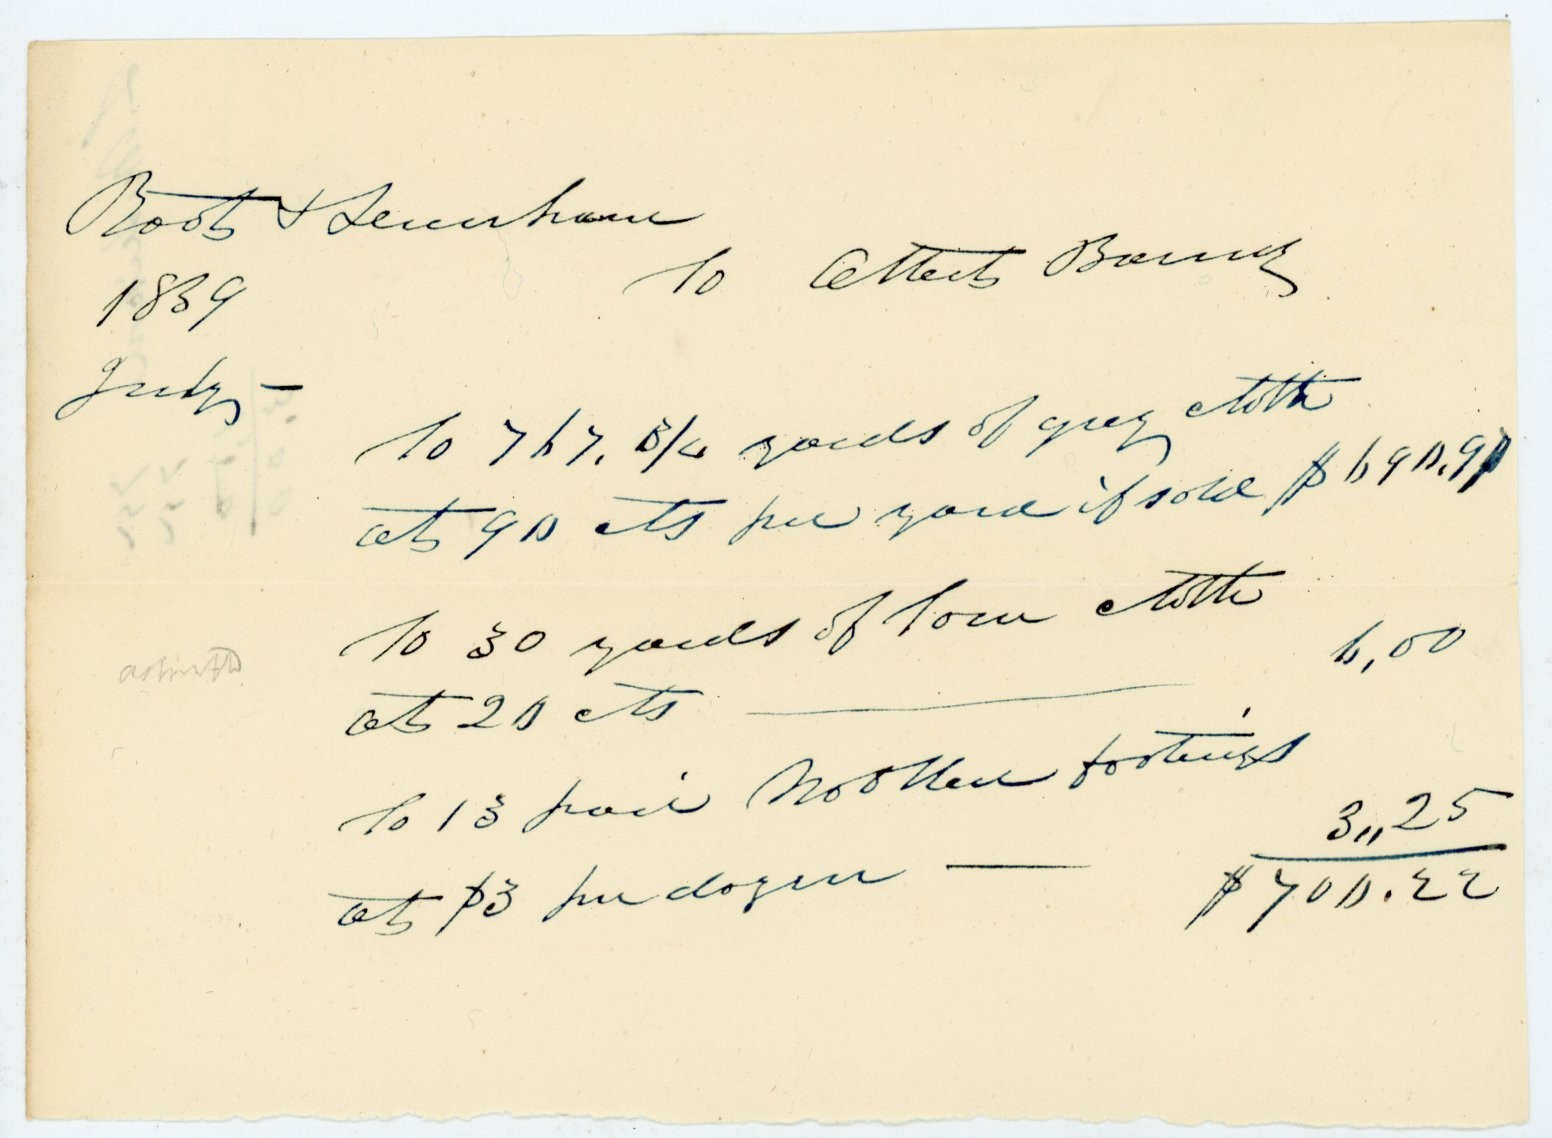 Root &
1839 To Barney
July –
To 767. 3/4 yards of grey cloth
at 90 cts per yard if sold $690.97
To 30 yards of Tow cloth
at 20 cts — 6,00
To 13 pair Woollen footings
at $3 per dozen — 3,,25
$700.22